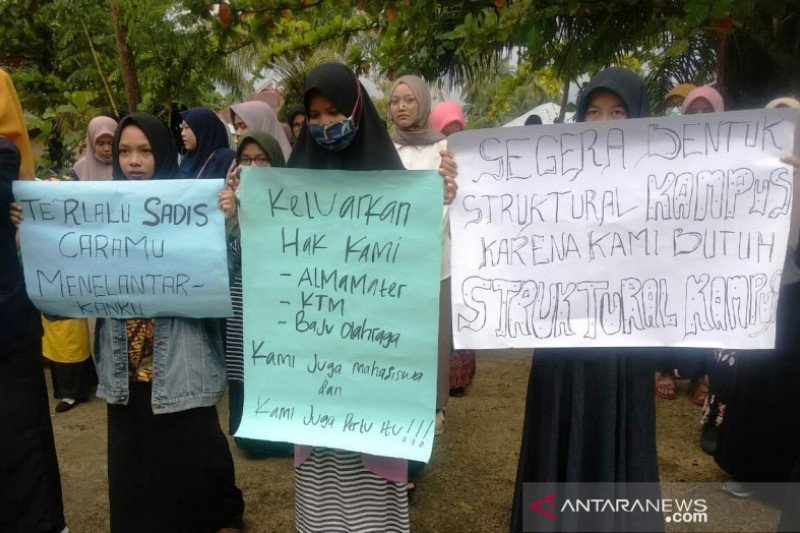 TERLALU SADIS
CARAMU
MENELANTAR-
KANKU
KELUARKAN
HAK KAMI
- ALMAMATER
- KTM
- BAJU OLAHRAGA
KAMI JUGA MAHASISWA
dan
KAMI JUGA PERLU ITU!!!
SEGERA BENTUK
STRUKTURAL KAMPUS
KARENA KAMI BUTUH
STRUKTURAL KAMPUS
ANTARANEWS
.com